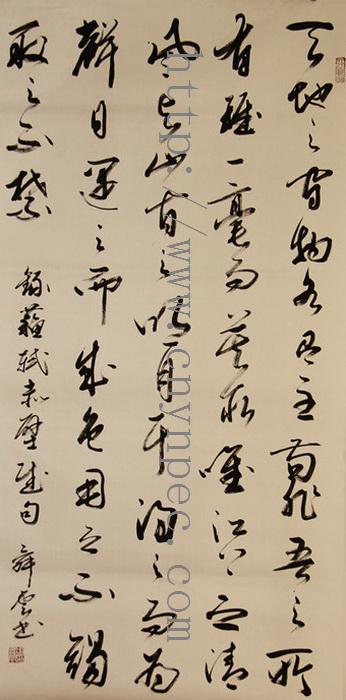 天地之間物各有主苟非吾之所
有雖一毫而莫取唯江上之清
風与山間之明月耳得之而為
聲目遇之而成色用之不竭
取之不禁
錄蘇軾赤壁賦句 舜雲书
http://www.cnynpec.com